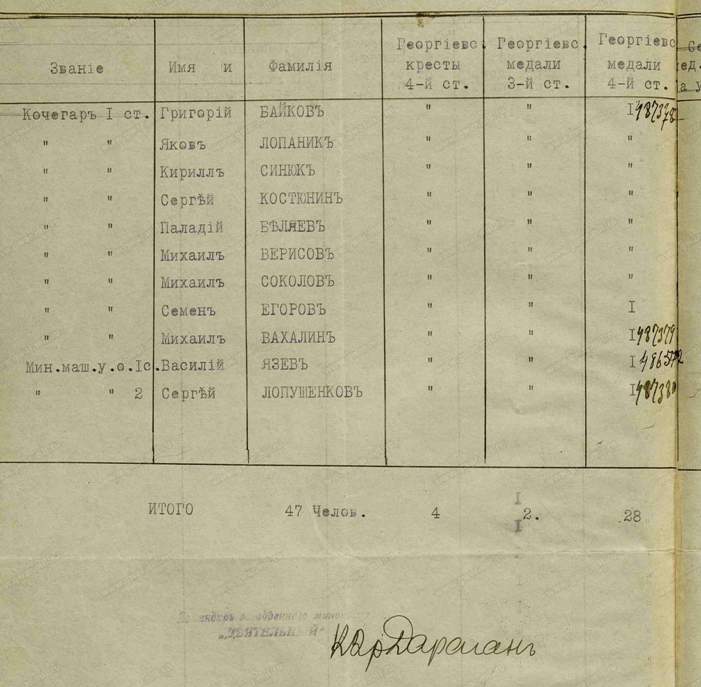 Званіе Имя и Фамилія Георгіевс. кресты 4-й ст. Георгіевс. медали 3-й ст. Георгіевс медали 4-й ст.
Кочегаръ I ст. Григорій БАЙКОВЪ " " I 487378
" " Яковъ ЛОПАНИК " " "
" " Кириллъ СИНЮКЪ " " "
" " Сергѣй КОСТЮНИНЪ " " "
" " Паладій БѢЛЯЕВЪ " " "
" " Михаилъ ВЕРИСОВЪ " " "
" " Михаилъ СОКОЛОВЪ " " "
" " Семенъ ЕГОРОВЪ " " I
" " Михаилъ ВАХАЛИНЪ " " I 487379
Мин.маш.у.о.Iс. Василій ЯЗЕВЪ " " I
" " 2 Сергѣй ЛОПУШЕНКОВЪ " " I 487380
ИТОГО 47 Челов. 4 2. 28